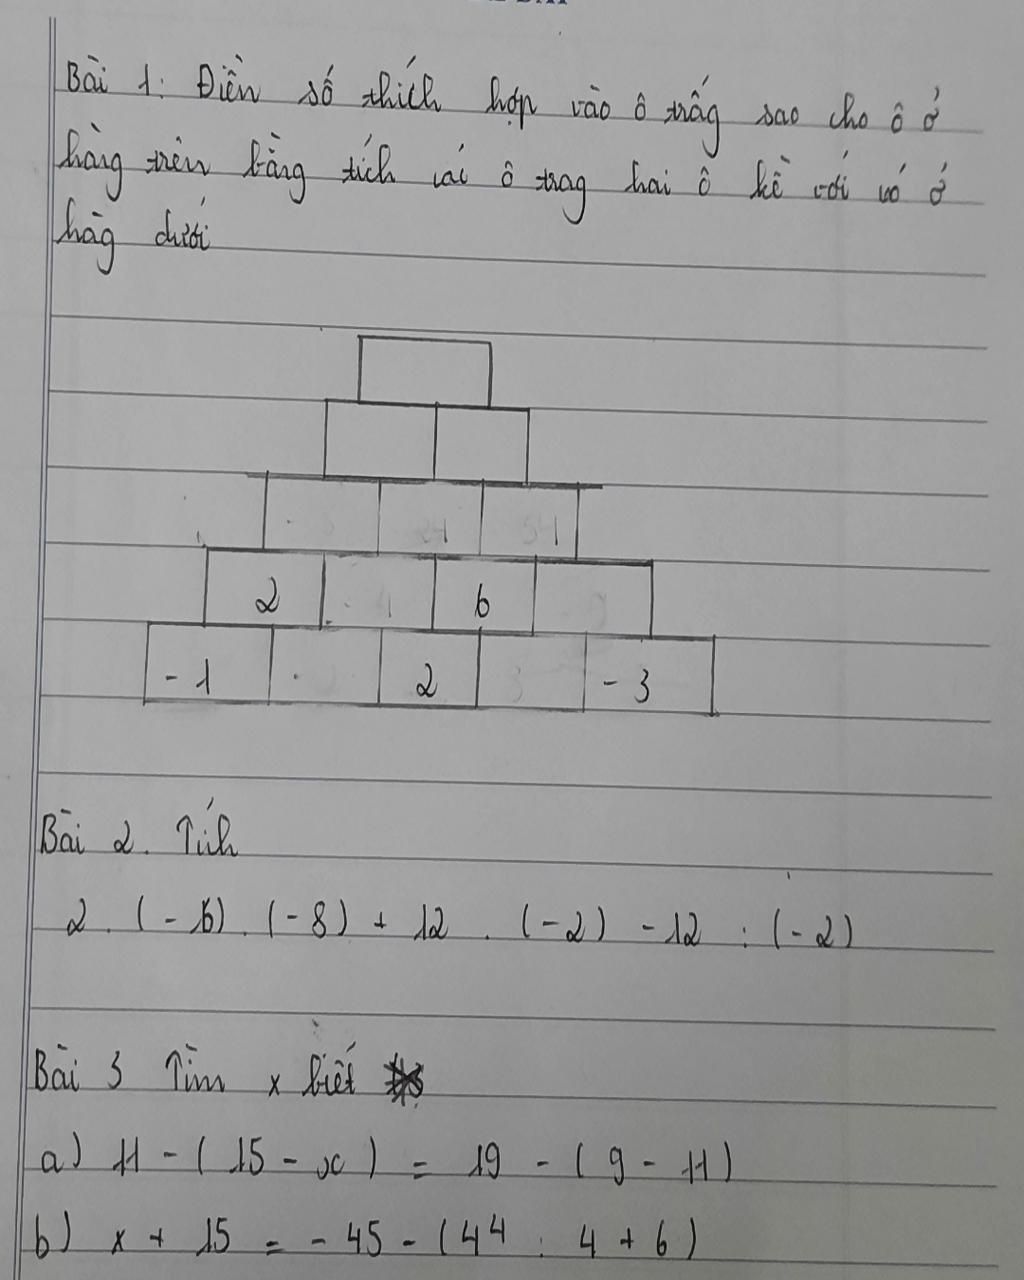 Bài 1: Điền số thích hợp vào ô trống sao cho ô ở
hàng trên bằng tích cái ô trog hai ô kề với nó ở
hàg dưới
2 6
-1 2 -3
Bài 2. Tính
2 . (-16) . (-8) + 12 . (-2) - 12 : (-2)
Bài 3 Tìm x biết
a) 11 - (15 - x) = 19 - (9 - 11)
b) x + 15 = - 45 - (44 : 4 + 6)